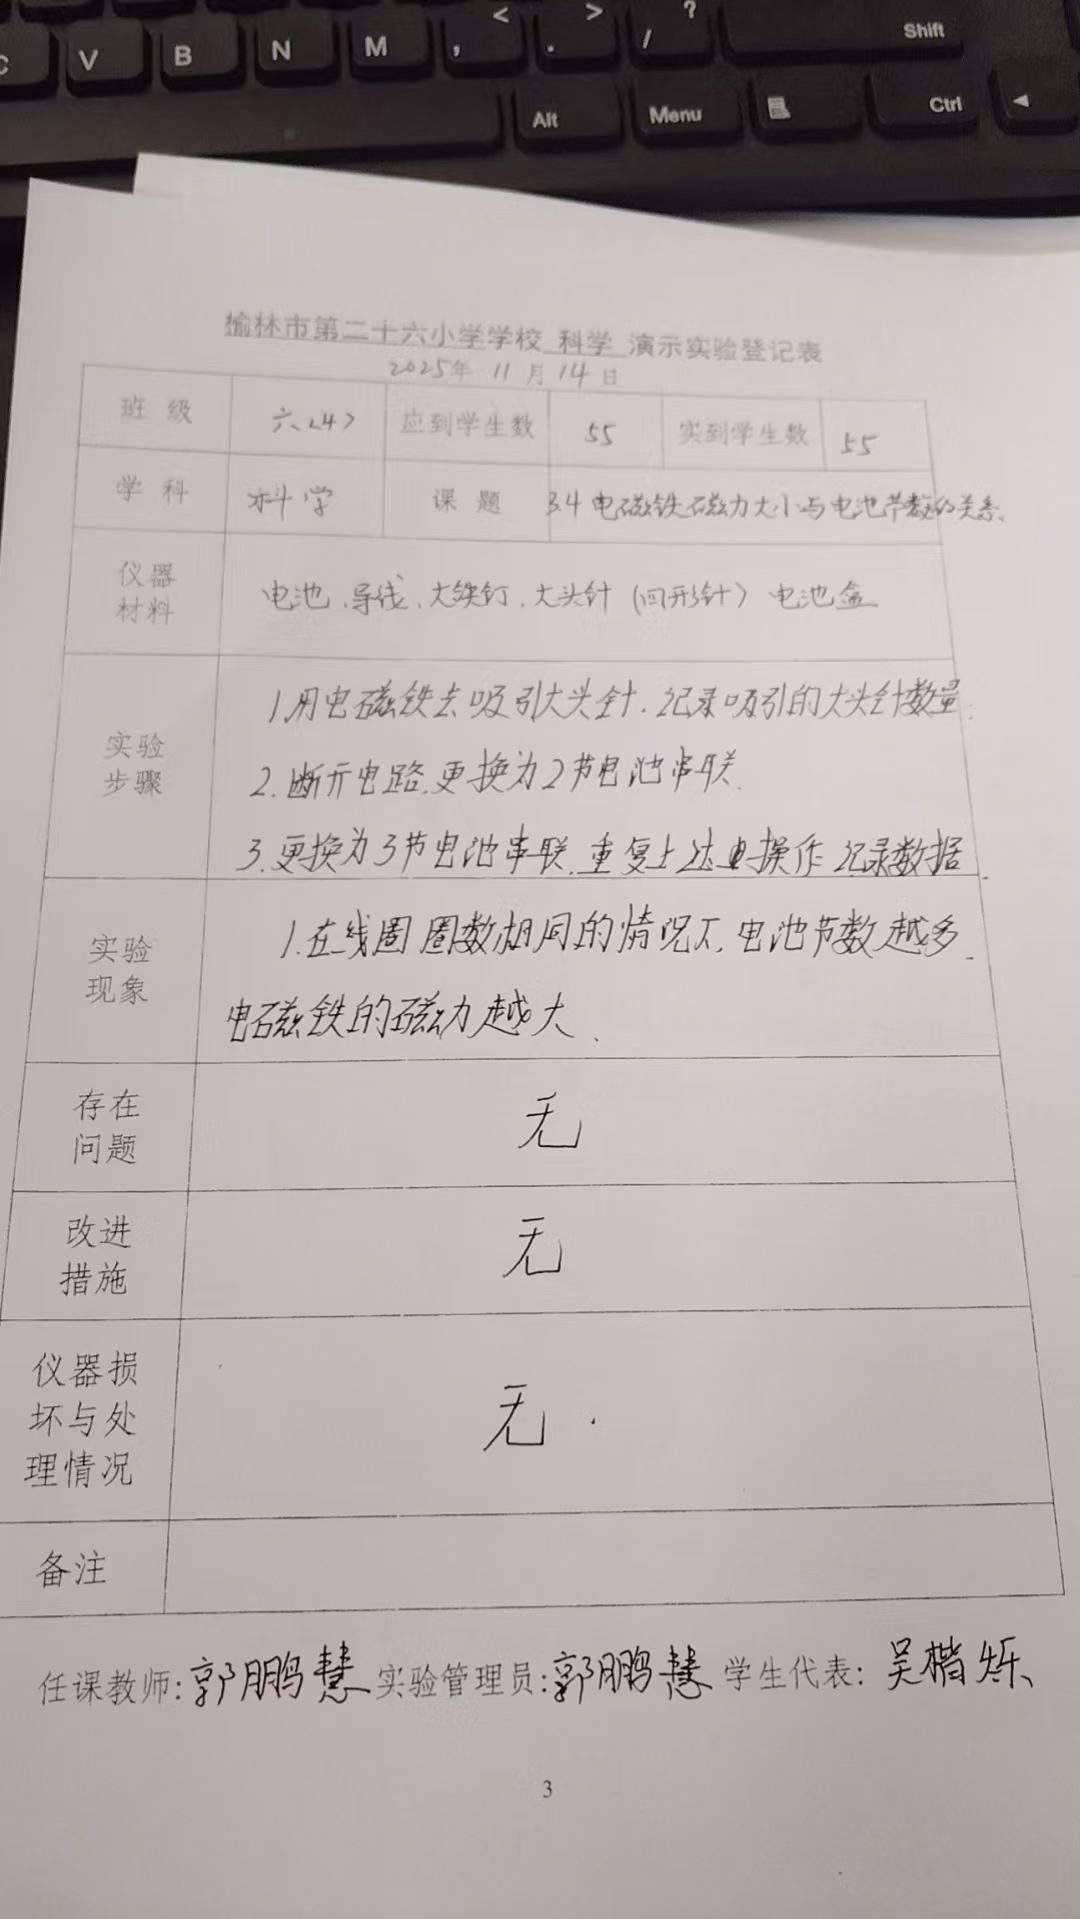 C V B N M < , > . ? / Shift
Alt Menu Ctrl
榆林市第二十六小学学校 科学 演示实验登记表
2025年 11月 14日
班级 六(4) 应到学生数 55 实到学生数 55
学科 科学 课题 3.4 电磁铁磁力大小与电池节数的关系.
仪器材料 电池、导线、大铁钉、大头针(回形针) 电池盒
实验步骤
1.用电磁铁去吸引大头针.记录吸引的大头针数量.
2.断开电路.更换为2节电池串联.
3.更换为3节电池串联.重复上述操作 记录数据.
实验现象
1.在线圈圈数相同的情况下,电池节数越多.
电磁铁的磁力越大.
存在问题 无
改进措施 无
仪器损坏与处理情况 无.
备注
任课教师:郭鹏慧 实验管理员:郭鹏慧 学生代表:吴楷烁
3